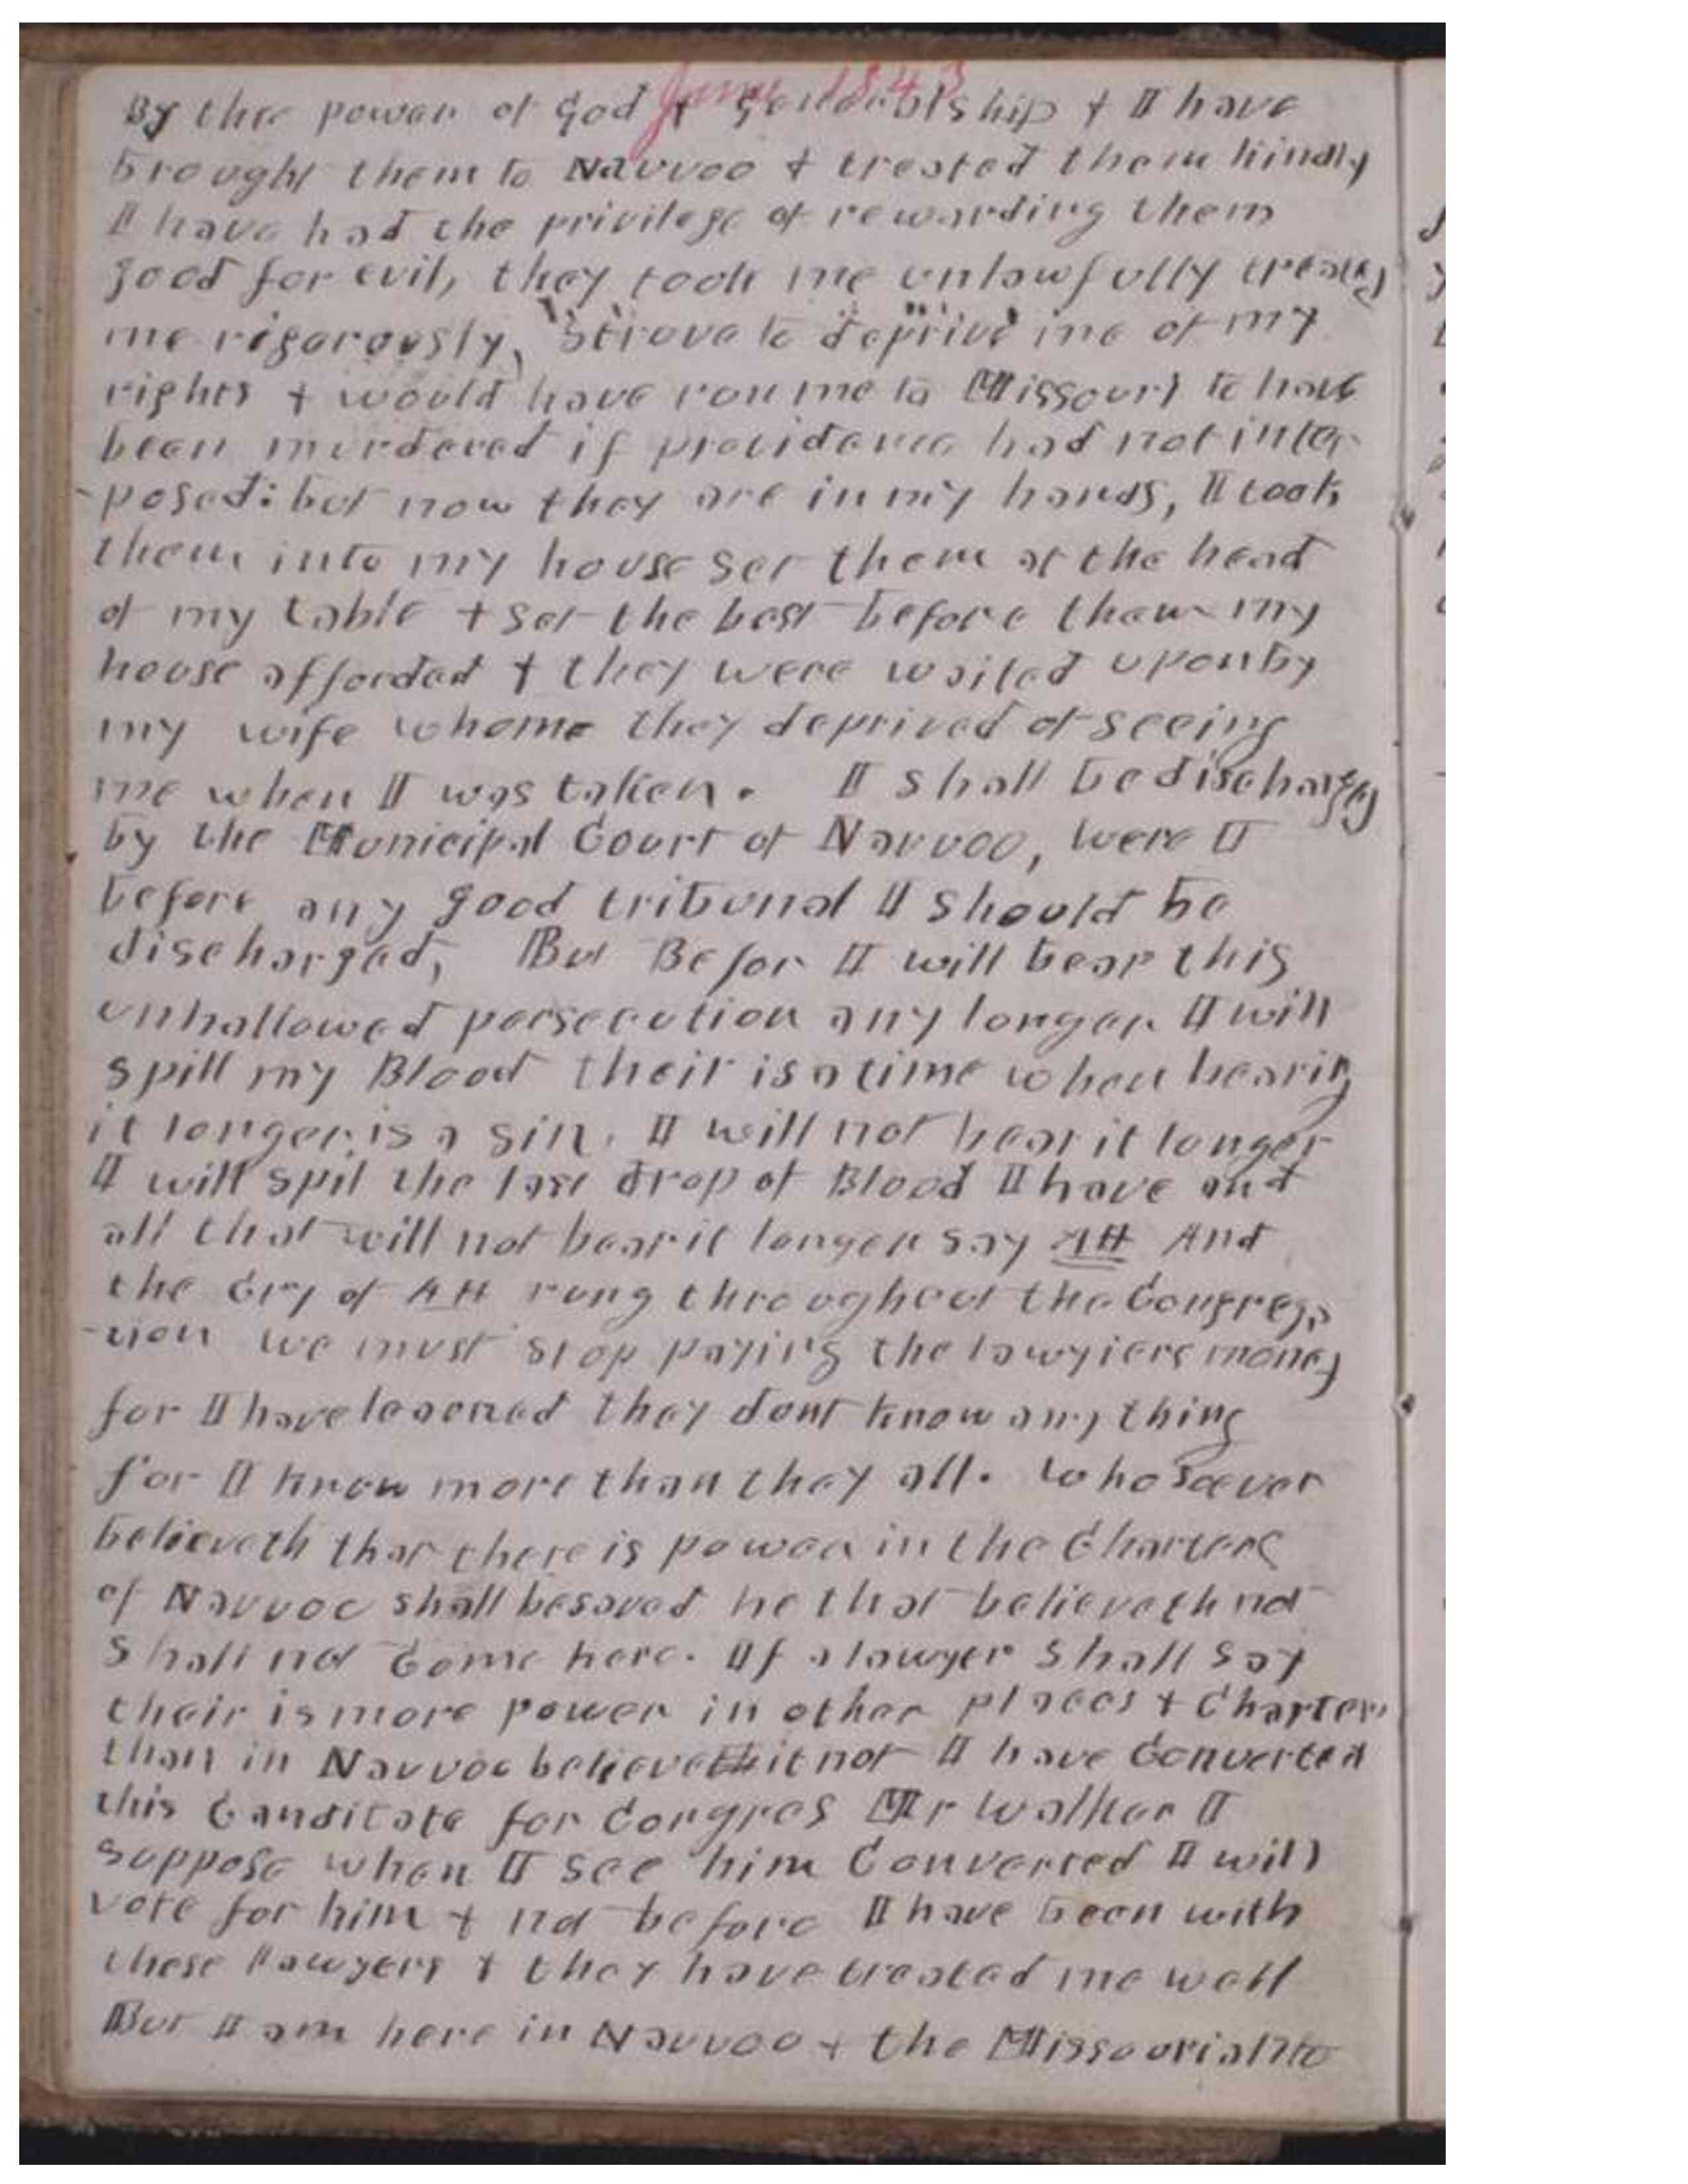 June 1843
By the power of God & Generalship & I have
brought them to Nauvoo & treated them kindly
I have had the privilege of rewarding them
good for evil, they took me unlawfully treated
me rigorously, strove to deprive me of my
rights & would have run me to Missouri to have
been murdered if providence had not inter-
-posed: but now they are in my hands, I took
them into my house set them at the head
of my table & set the best before them my
house afforded & they were waited upon by
my wife whome they deprived of seeing
me when I was taken. I shall be discharged
by the Municipal Court of Nauvoo, were I
before any good tribunal I should be
discharged, But Befor I will bear this
unhallowed persecution any longer I will
spill my Blood their is a time when bearing
it longer is a sin. I will not bear it longer
I will spil the last drop of Blood I have and
all that will not bear it longer say AH And
the Cry of AH rung throughout the Congrega
-tion we must stop paying the lawyiers money
for I have learned they dont know any thing
for I know more than they all. Whosoever
believeth that there is power in the Charters
of Nauvoo shall be saved he that believeth not
shall not Come here. If a lawyer shall say
their is more power in other places & Charters
than in Nauvoo believe it not I have Converted
this Canditate for Congres Mr Walker I
suppose when I see him Converted I will
vote for him & not before I have been with
these lawyers & they have treated me well
But I am here in Nauvoo & the Missourians to